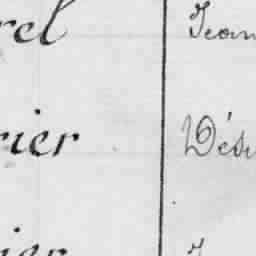 rel Jean
rier Dés
ier